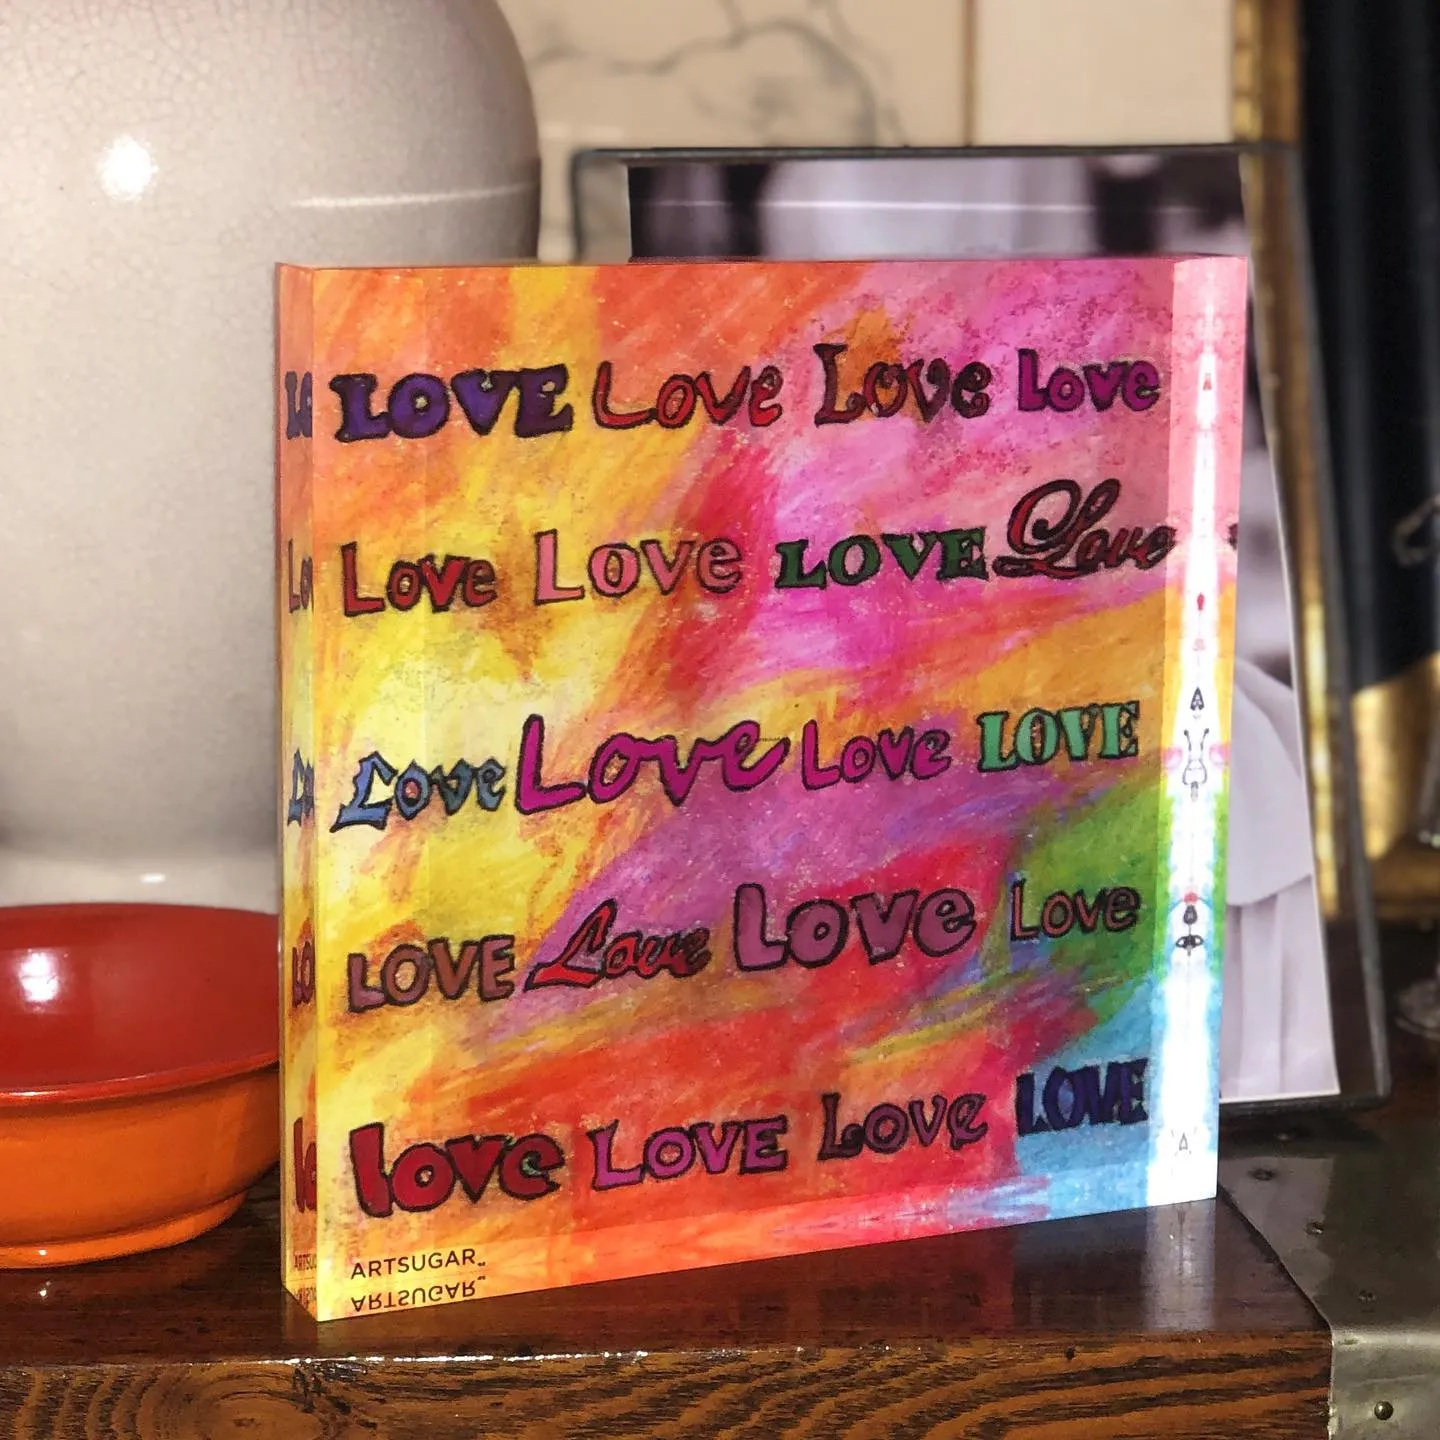 LOVE Love Love Love
Love Love LOVE Love
Love Love Love LOVE
LOVE Love Love Love
love LOVE Love LOVE
ARTSUGAR